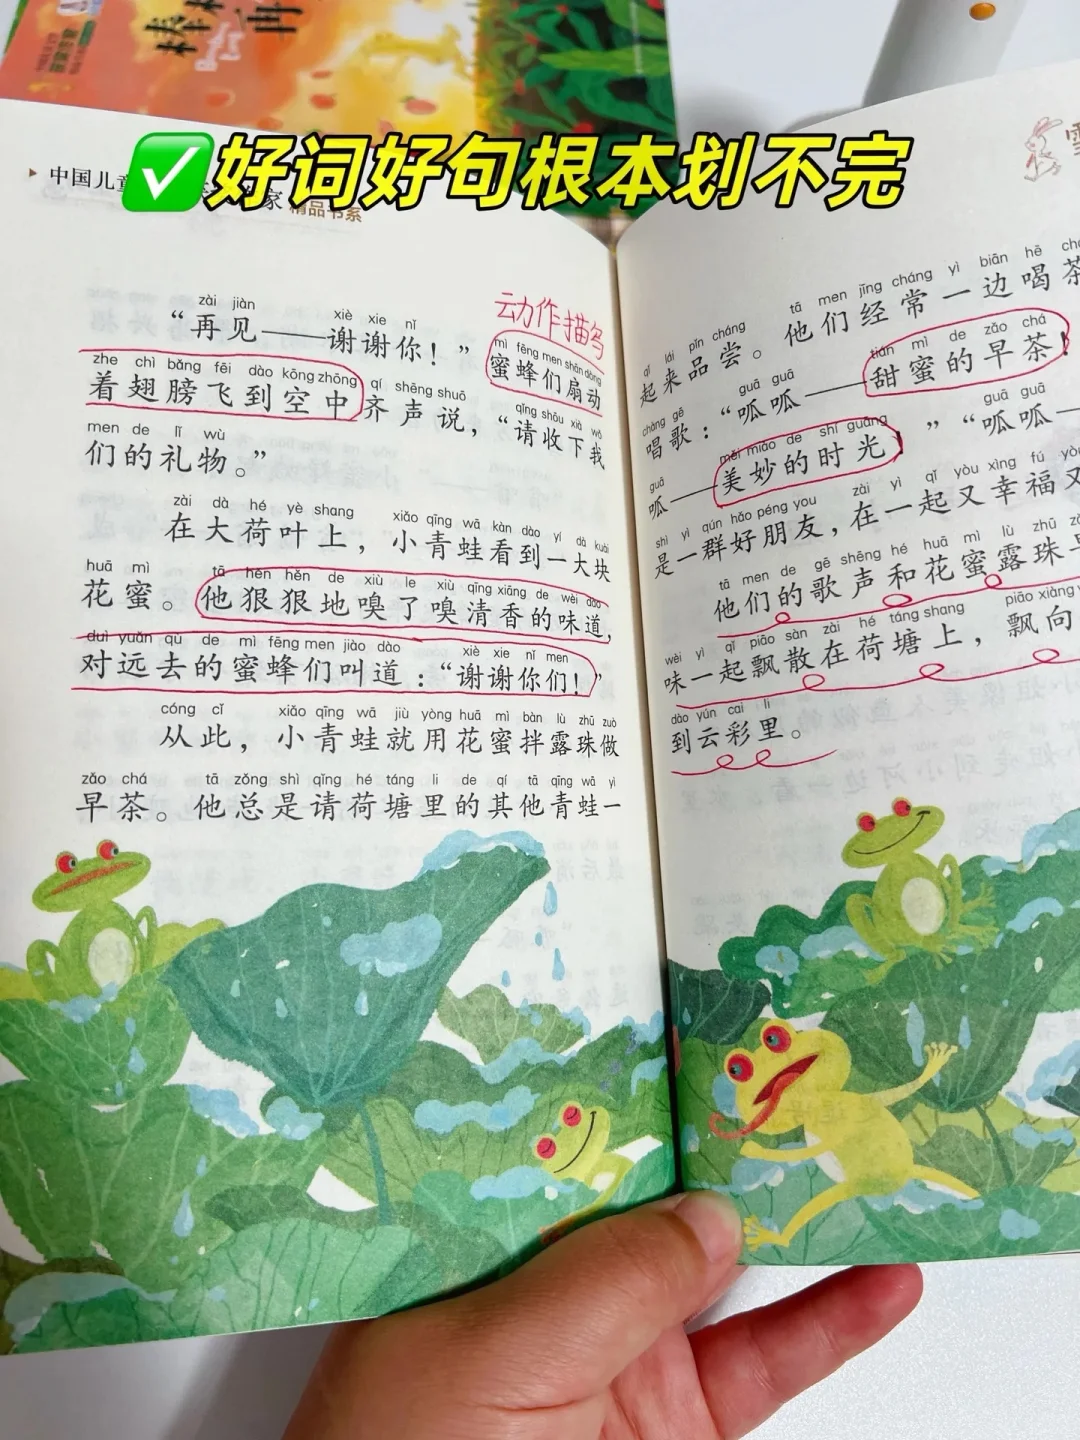 棒棒
再
✅好词好句根本划不完
中国儿童
家 精品书系
动作描写
zài jiàn xiè xie nǐ mì fēng men shān dòng
“再见——谢谢你！”蜜蜂们扇动
zhe chì bǎng fēi dào kōng zhōng qí shēng shuō qǐng shōu xià wǒ
着翅膀飞到空中齐声说，“请收下我
men de lǐ wù
们的礼物。”
zài dà hé yè shang xiǎo qīng wā kàn dào yí dà kuài
在大荷叶上，小青蛙看到一大块
huā mì tā hěn hěn de xiù le xiù qīng xiāng de wèi dào
花蜜。他狠狠地嗅了嗅清香的味道，
duì yuǎn qù de mì fēng men jiào dào xiè xie nǐ men
对远去的蜜蜂们叫道：“谢谢你们！”
cóng cǐ xiǎo qīng wā jiù yòng huā mì bàn lù zhū zuò
从此，小青蛙就用花蜜拌露珠做
zǎo chá tā zǒng shì qǐng hé táng li de qí tā qīng wā yì
早茶。他总是请荷塘里的其他青蛙一
qǐ lái pǐn cháng tā men jīng cháng yì biān hē chá
起来品尝。他们经常一边喝茶
chàng gē guā guā tián mì de zǎo chá
唱歌：“呱呱——甜蜜的早茶！
guā měi miào de shí guāng guā guā
呱——美妙的时光！”“呱呱——
shì yì qún hǎo péng you zài yì qǐ yòu xìng fú yòu
是一群好朋友，在一起又幸福又
tā men de gē shēng hé huā mì lù zhū zǎo
他们的歌声和花蜜露珠早
wèi yì qǐ piāo sàn zài hé táng shang piāo xiàng
味一起飘散在荷塘上，飘向
dào yún cai li
到云彩里。